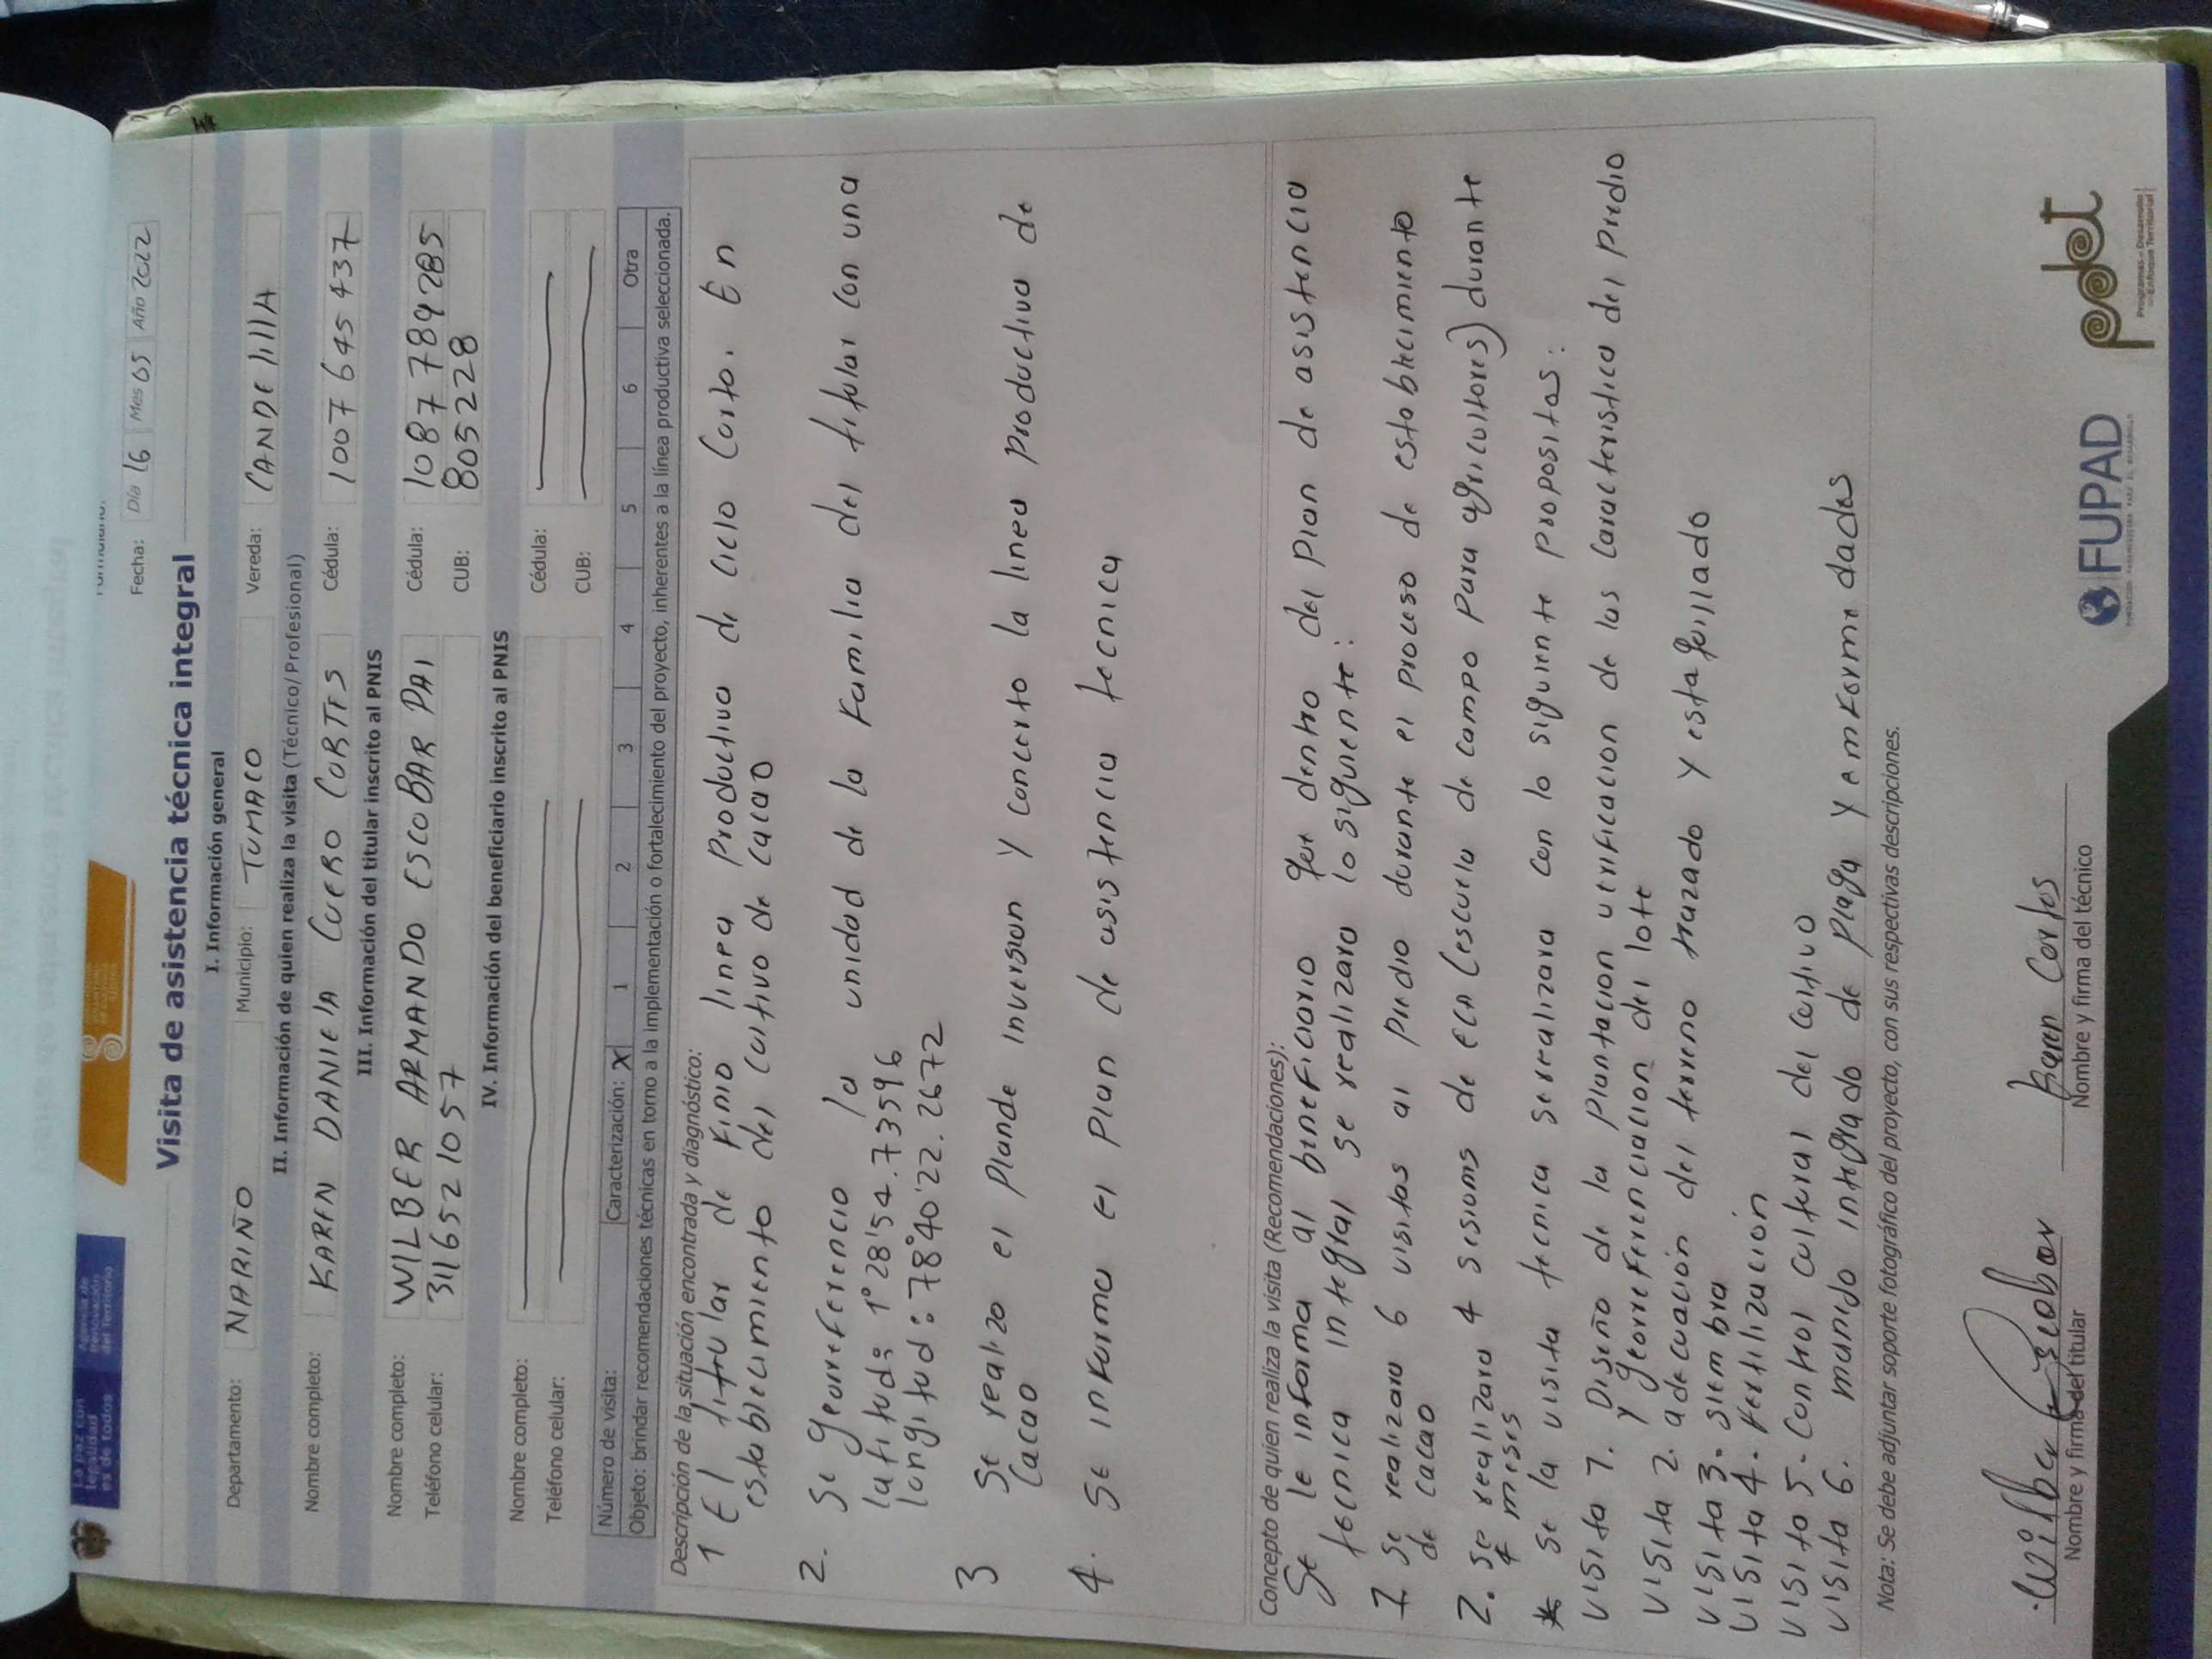 La paz con
legalidad
es de todos
Agencia de
Renovación
del Territorio
Fecha: Día 16 Mes 05 Año 2022
Visita de asistencia técnica integral
I. Información general
Departamento: NARIÑO Municipio: TUMACO Vereda: CANDElillA
II. Información de quien realiza la visita (Técnico/ Profesional)
Nombre completo: KAREN DANIElA CUERO CORTES Cédula: 1007645437
III. Información del titular inscrito al PNIS
Nombre completo: WILBER ARMANDO ESCOBAR PAI Cédula: 1087789285
Teléfono celular: 3116521057 CUB: 805228
IV. Información del beneficiario inscrito al PNIS
Nombre completo: Cédula:
Teléfono celular: CUB:
Número de visita: Caracterización: X 1 2 3 4 5 6 Otra
Objeto: brindar recomendaciones técnicas en torno a la implementación o fortalecimiento del proyecto, inherentes a la línea productiva seleccionada.
Descripción de la situación encontrada y diagnóstico:
1 El titular de Finio linea Productiva de ciclo Corto. En
establecimiento del cultivo de cacao
2. Se georeferencio la unidad de la Familia del titular con una
latitud: 1°28'54.73596
longitud: 78°40'22.2672
3 Se realizo el Plande inversion y concerto la linea productiva de
Cacao
4. Se informa el Plan de asistencia tecnica
Concepto de quien realiza la visita (Recomendaciones):
Se le informa al beneficiario que dentro del Plan de asistencia
tecnica integral se realizara lo siguiente:
1 Se realizara 6 visitas al predio durante el proceso de establecimiento
de cacao
2. Se realizara 4 sesions de eca (escuela de campo para agricultores) durante
4 meses
* Se la visita tecnica se realizara con lo siguiente propositos:
visita 1. Diseño de la Plantacion verificacion de las caracteristica del predio
y georeferenciacion del lote
visita 2. adecuación del terreno trazado y estaquillado
visita 3. siembra
visita 4. Fertilización
visita 5. Control cultural del cultivo
visita 6. manejo integrado de plaga y emfermedades
Nota: Se debe adjuntar soporte fotográfico del proyecto, con sus respectivas descripciones.
Wilber Escobar
Nombre y firma del titular
Karen Cortes
Nombre y firma del técnico
FUPAD
pdet
Programas de Desarrollo
con Enfoque Territorial